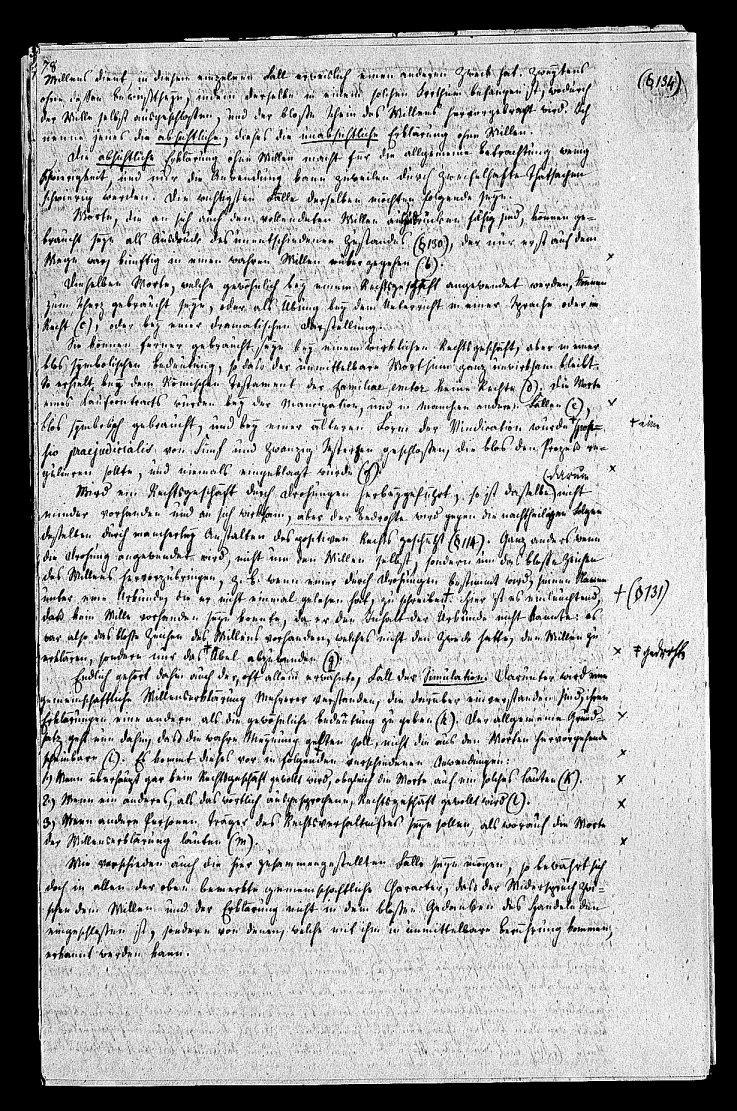 78
(§ 134)
Willens dient in diesem einzelnen Fall erweislich einen anderen Zweck hat. Zweytens
ohne dessen Bewußtseyn, indem derselbe in einem solchen Irrthum befangen ist, wodurch
der Wille selbst ausgeschlossen, und der bloße Schein des Willens hervorgebracht wird. Ich
nenne jenes die absichtliche, dieses die unabsichtliche Erklärung ohne Willen.
Die absichtliche Erklärung ohne Willen macht für die allgemeine Betrachtung wenig
Schwierigkeit, und nur die Anwendung kann zuweilen durch zweifelhafte Thatsachen
schwierig werden. Die wichtigsten Fälle derselben möchten folgende seyn.
Worte, die an sich auch den vollendeten Willen auszudrücken fähig sind, können ge-
braucht seyn als Ausdruck des unentschiedenen Zustandes (§ 130), der nur erst auf dem
Wege war künftig in einen wahren Willen überzugehen (b).
Dieselben Worte, welche gewöhnlich bey einem Rechtsgeschäft angewendet werden, können
zum Scherz gebraucht seyn, oder als Übung bey dem Unterricht in einer Sprache oder im
Recht (c), oder bey einer dramatischen Darstellung.
Sie können ferner gebraucht seyn bey einem wirklichen Rechtsgeschäft, aber in einer
blos symbolischen Bedeutung, so daß der unmittelbare Wortsinn ganz unwirksam bleibt.
So erhielt bey dem Römischen Testament der familiae emtor keine Rechte (d). Die Worte
eines Kaufcontracts wurden bey der Mancipation, und in manchen anderen Fällen (e),
blos symbolisch gebraucht, und bey einer älteren Form der Vindication wurde + spon-
sio praejudicialis von Fünf und Zwanzig Sesterzen geschlossen, die blos den Prozeß re-
guliren sollte, und niemals eingeklagt wurde (f).
+ eine
Wird ein Rechtsgeschäft durch Drohungen herbeygeführt, so ist dasselbe darum nicht
minder vorhanden und an sich wirksam, aber der Bedrohte wird gegen die nachtheiligen Folgen
desselben durch mancherley Anstalten des positiven Rechts geschützt (§ 114). Ganz anders wenn
die Drohung angewendet wird, nicht um den Willen selbst, sondern um das bloße Zeichen
des Willens hervorzubringen, z. B. wenn einer durch Drohungen bestimmt wird, seinen Namen
unter eine Urkunde die er nicht einmal gelesen hat, zu schreiben +. Hier ist es einleuchtend,
daß kein Wille vorhanden seyn konnte, da er den Inhalt der Urkunde nicht kannte: es
war also das bloße Zeichen des Willens vorhanden, welches nicht den Zweck hatte, den Willen zu
erklären, sondern nur das ‡ Übel abzuwenden (g).
+ (§ 131)
‡ gedrohte
Endlich gehört dahin auch der, oft allein erwähnte, Fall der Simulation. Darunter wird eine
gemeinschaftliche Willenserklärung Mehrerer verstanden, die darüber einverstanden sind, ihren
Erklärungen eine andere, als die gewöhnliche Bedeutung zu geben (h). Der allgemeine Grund-
satz geht nun dahin, daß die wahre Meynung gelten soll, nicht die aus den Worten hervorgehende
scheinbare (i). Es kommt dieses vor in folgenden verschiedenen Anwendungen:
1) Wenn überhaupt gar kein Rechtsgeschäft gewollt wird, obgleich die Worte auf ein solches lauten (k).
2) Wenn ein anderes, als das wörtlich ausgesprochene, Rechtsgeschäft gewollt wird (l).
3) Wenn andere Personen Träger des Rechtsverhältnisses seyn sollen, als worauf die Worte
der Willenserklärung lauten (m).
Wie verschieden auch die hier zusammengestellten Fälle seyn mögen, so bewährt sich
doch in allen der oben bemerkte gemeinschaftliche Character, daß der Widerspruch zwi-
schen dem Willen und der Erklärung nicht in dem bloßen Gedanken des Handelnden
eingeschlossen ist, sondern von denen, welche mit ihm in unmittelbare Berührung kommen,
erkannt werden kann.